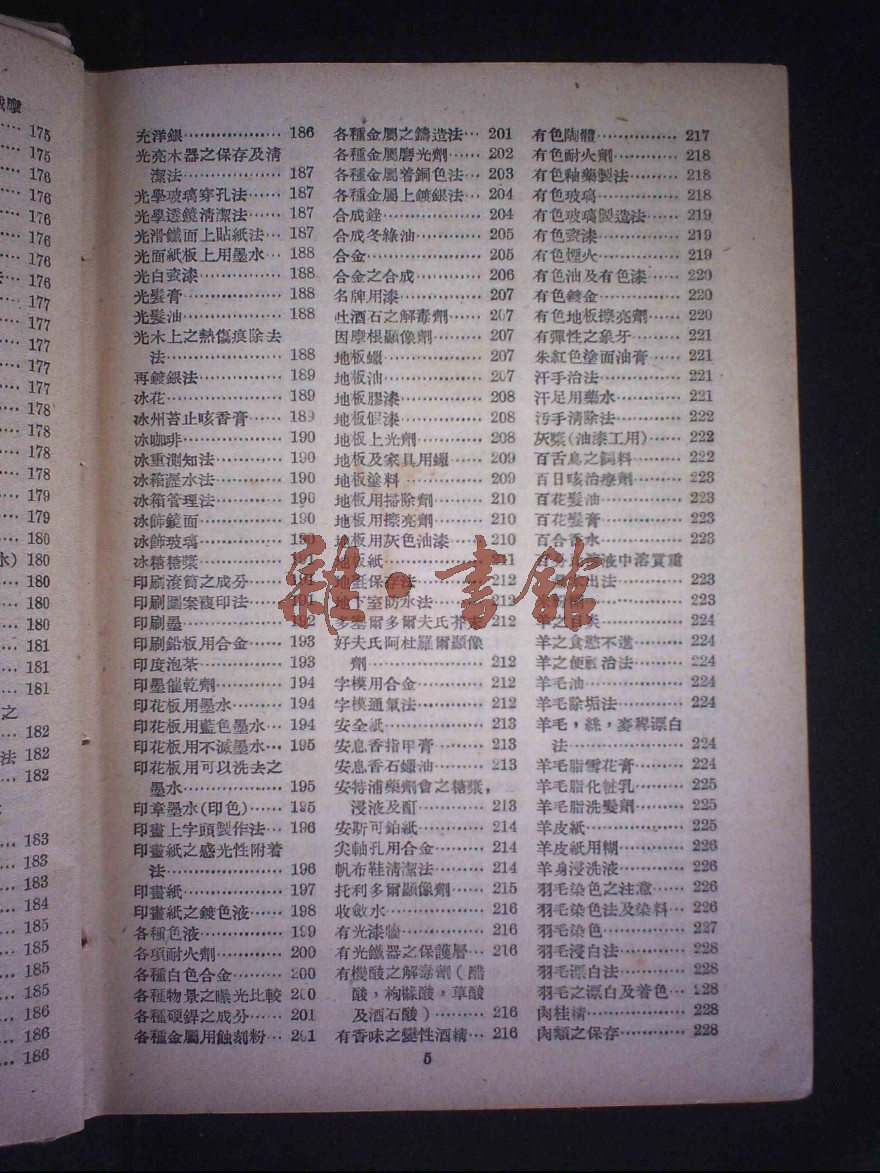 175
175
176
176
176
176
176
176
177
177
177
177
178
178
178
178
179
179
180
180
180
180
180
181
181
之
182
法 182
182
183
183
183
184
185
185
185
185
186
186
充洋銀……………… 186
光亮木器之保存及清
潔法……………… 187
光學玻璃穿孔法…… 187
光學透鏡清潔法…… 187
光滑鐵面上貼紙法… 187
光面紙板上用墨水… 188
光白瓷漆…………… 188
光髮膏……………… 188
光髮油……………… 188
光木上之熱傷痕除去
法………………… 188
再鍍銀法…………… 189
冰花………………… 189
冰州苔止咳香膏…… 189
冰咖啡……………… 190
冰重測知法………… 190
冰箱瀝水法………… 190
冰箱管理法………… 190
冰飾鏡面…………… 190
冰飾玻璃…………… 190
冰糖糖漿…………… 191
印刷滾筒之成分…… 191
印刷圖案複印法…… 191
印刷墨……………… 192
印刷鉛板用合金…… 193
印度泡茶…………… 193
印墨催乾劑………… 194
印花板用墨水……… 194
印花板用藍色墨水… 194
印花板用不滅墨水… 195
印花板用可以洗去之
墨水……………… 195
印章墨水(印色)…… 195
印畫上字頭製作法… 196
印畫紙之感光性附着
法………………… 196
印畫紙……………… 197
印畫紙之鍍色液…… 198
各種色液…………… 199
各項耐火劑………… 200
各種白色合金……… 200
各種物景之曝光比較 200
各種硬銲之成分…… 201
各種金屬用蝕刻粉… 201
各種金屬之鑄造法… 201
各種金屬磨光劑…… 202
各種金屬着銅色法… 203
各種金屬上鍍銀法… 204
合成銼……………… 204
合成冬綠油………… 205
合金………………… 205
合金之合成………… 206
名牌用漆…………… 207
吐酒石之解毒劑…… 207
因摩根顯像劑……… 207
地板蠟……………… 207
地板油……………… 207
地板膠漆…………… 208
地板假漆…………… 208
地板上光劑………… 208
地板及家具用蠟…… 209
地板塗料…………… 209
地板用掃除劑……… 210
地板用擦亮劑……… 210
地板用灰色油漆…… 210
地板紙……………… 211
地氈保存法………… 212
地下室防水法……… 212
多塞爾多爾夫氏芥末 212
好夫氏阿杜羅爾顯像
劑………………… 212
字模用合金………… 212
字模通氣法………… 212
安全紙……………… 213
安息香指甲膏……… 213
安息香石蠟油……… 213
安特浦藥劑會之糖漿,
浸液及酊………… 213
安斯可鉑紙………… 214
尖軸孔用合金……… 214
帆布鞋清潔法……… 214
托利多爾顯像劑…… 215
收斂水……………… 216
有光漆物…………… 216
有光鐵器之保護層… 216
有機酸之解毒劑(醋
酸,枸櫞酸,草酸
及酒石酸)……… 216
有香味之變性酒精… 216
有色陶體…………… 217
有色耐火劑………… 218
有色釉藥製法……… 218
有色玻璃…………… 218
有色玻璃製造法…… 219
有色瓷漆…………… 219
有色煙火…………… 219
有色油及有色漆…… 220
有色鍍金…………… 220
有色地板擦亮劑…… 220
有彈性之象牙……… 221
朱紅色塗面油膏…… 221
汗手治法…………… 221
汗足用藥水………… 221
污手清除法………… 222
灰漿(油漆工用)…… 222
百舌鳥之飼料……… 222
百日咳治療劑……… 223
百花髮油…………… 223
百花髮膏…………… 223
百合香水…………… 223
百分比溶液中溶質重
求出法…………… 223
223
羊之目 224
羊之食慾不進……… 224
羊之便祕治法……… 224
羊毛油……………… 224
羊毛除垢法………… 224
羊毛,絲,麥稈漂白
法………………… 224
羊毛脂雪花膏……… 224
羊毛脂化粧乳……… 225
羊毛脂洗髮劑……… 225
羊皮紙……………… 225
羊皮紙用糊………… 226
羊身浸洗液………… 226
羽毛染色之注意…… 226
羽毛染色法及染料… 226
羽毛染色…………… 227
羽毛浸白法………… 228
羽毛漂白法………… 228
羽毛之漂白及着色… 228
肉桂精……………… 228
肉類之保存………… 228
5
雜·書館